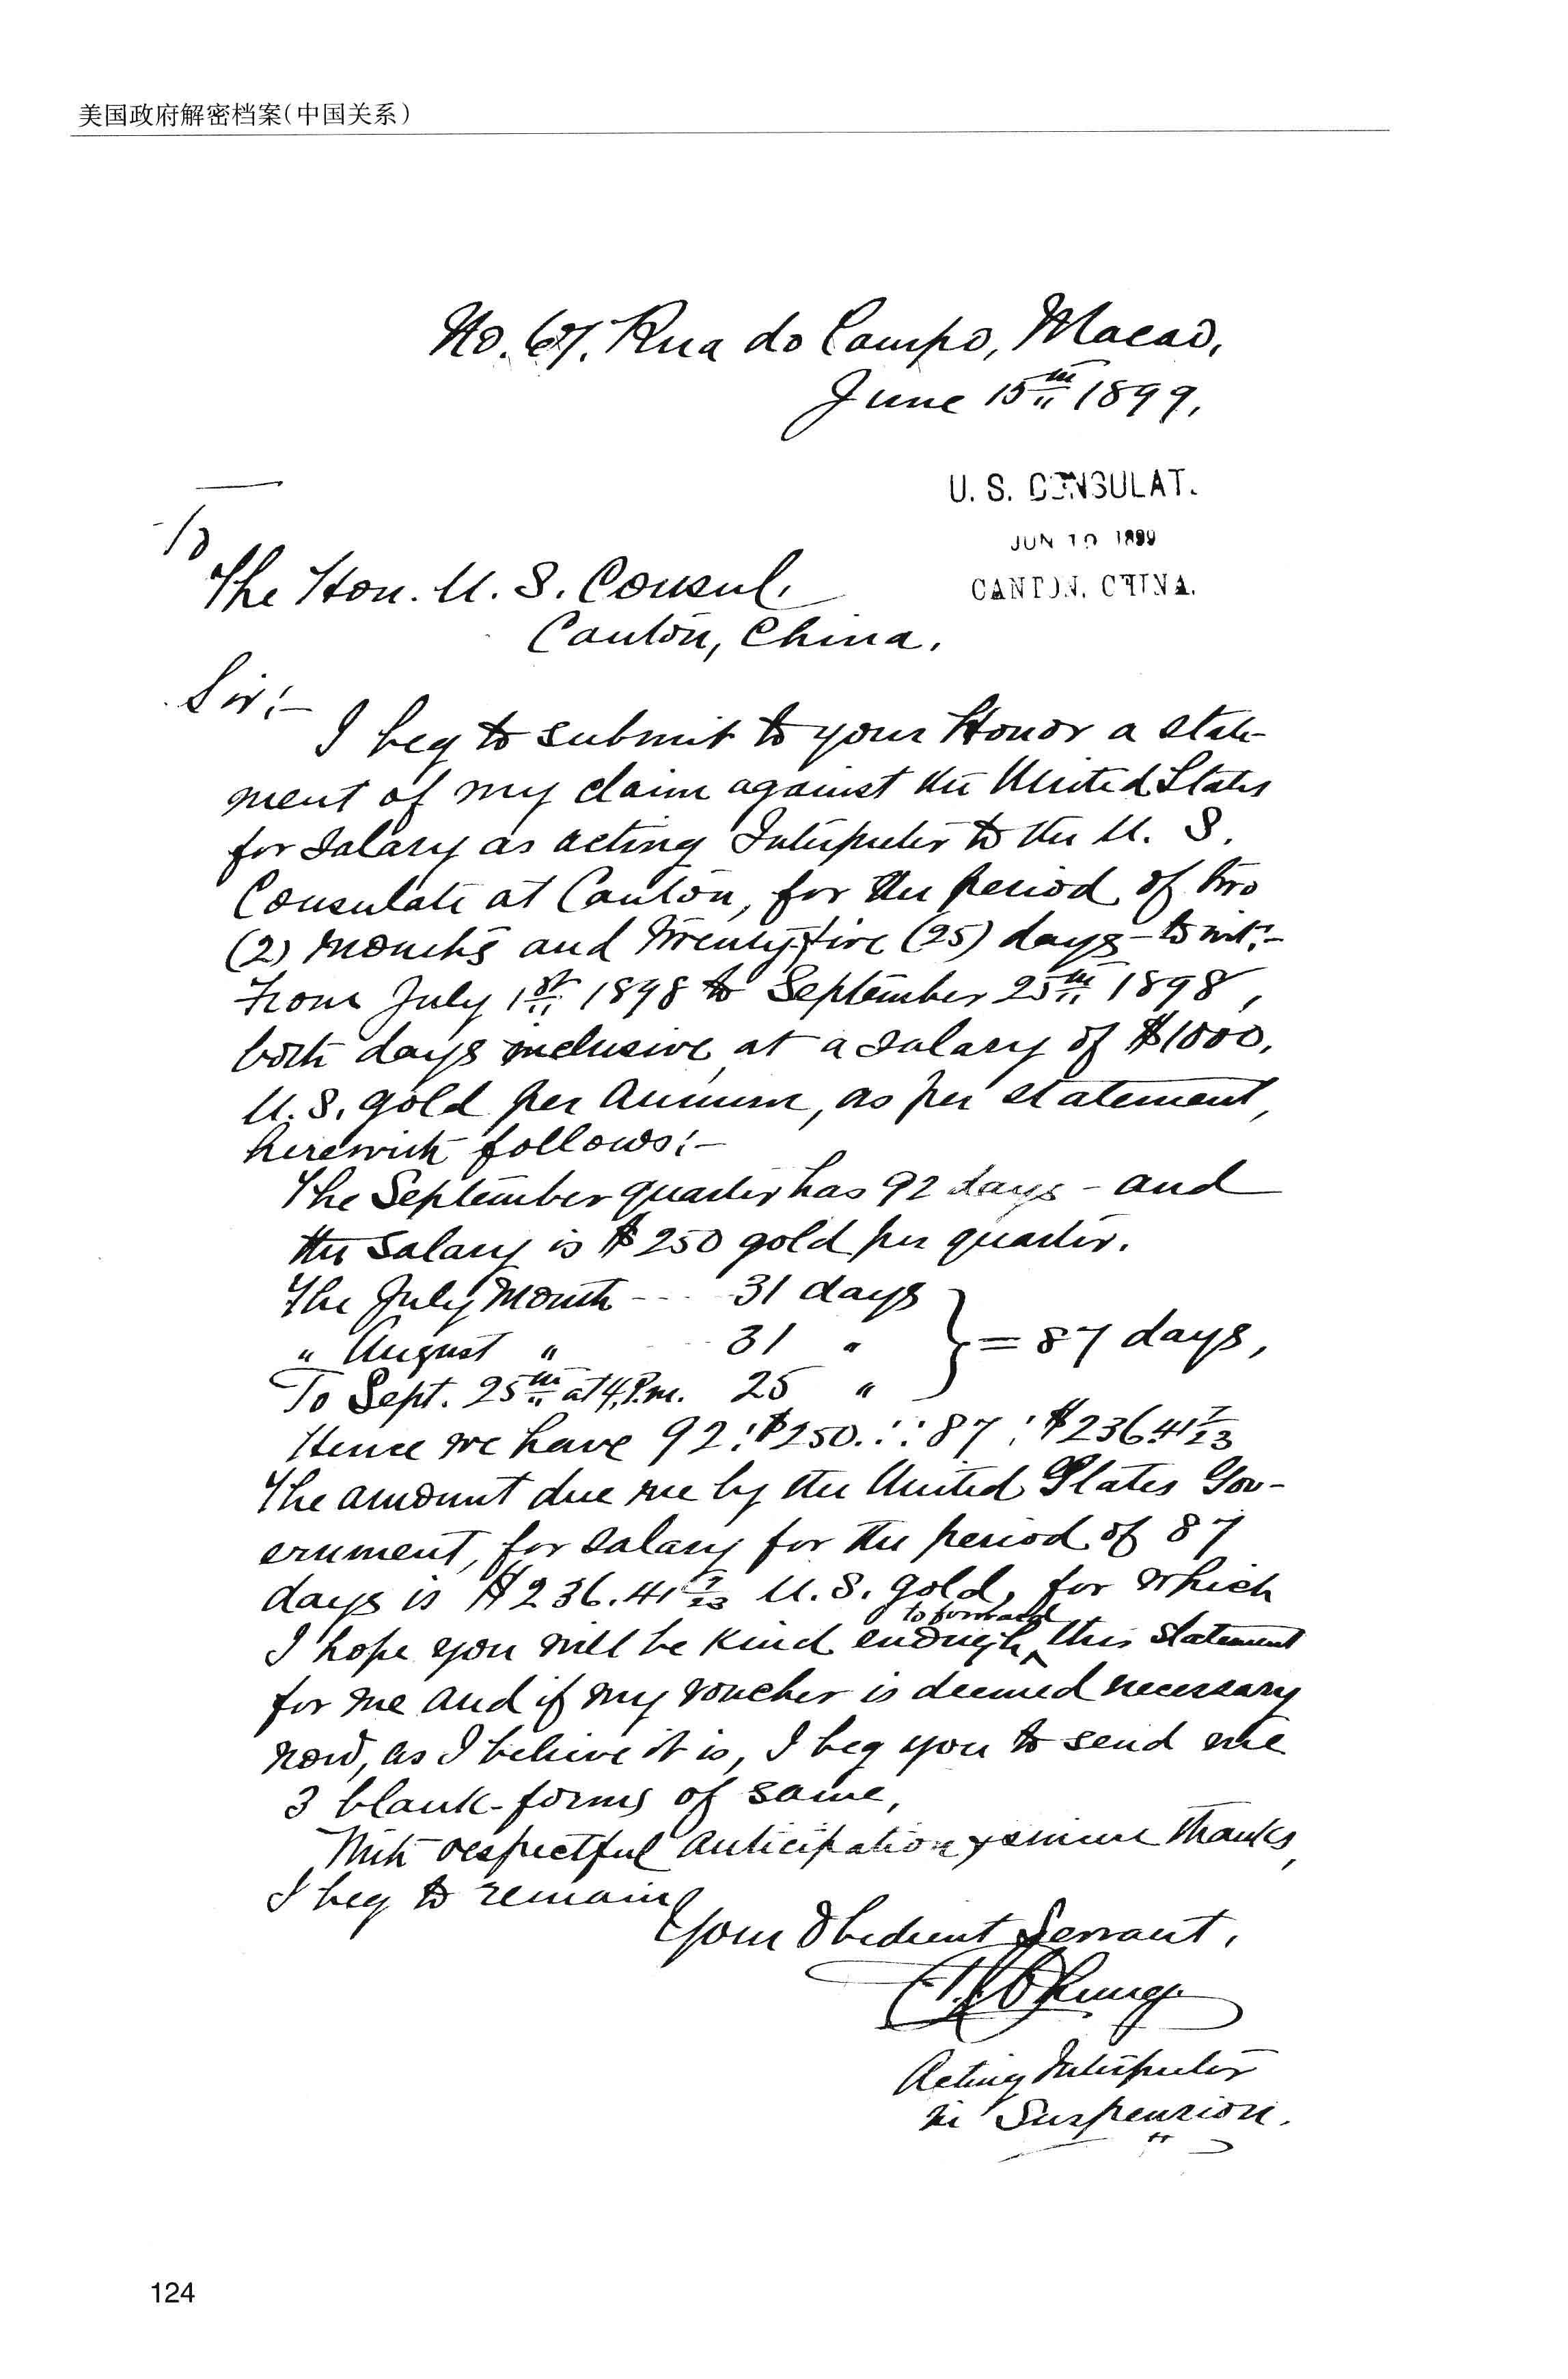 美国政府解密档案(中国关系)
No. 67. Rua do Campo, Macao,
June 15th 1899,
U. S. CONSULAT.
JUN 1 1899
CANTON, CHINA.
To
The Hon. U. S. Consul,
Canton, China.
Sir:-
I beg to submit to your Honor a state-
ment of my claim against the United States
for salary as acting Interpreter to the U. S.
Consulate at Canton, for the period of two
(2) months and twenty-five (25) days - to wit:-
From July 1st 1898 to September 25th 1898,
both days inclusive, at a salary of $1000.
U.S. gold per annum, as per statement,
herewith follows:-
The September quarter has 92 days - and
the salary is $250 gold per quarter.
The July Month --- 31 days
" August " -- 31 "
} = 87 days,
To Sept. 25th at 4 P.m. 25 "
Hence we have 92:$250.::87:$236.41 7/23
The amount due me by the United States Gov-
ernment, for salary for the period of 87
days is $236.41 7/23 U.S. gold, for which
I hope you will be kind enough ^to forward this statement
for me and if my voucher is deemed necessary
now, as I believe it is, I beg you to send me
3 blank-forms of same,
With respectful anticipation & sincere thanks,
I beg to remain
Your Obedient Servant,
Acting Interpreter
in Suspension.
124